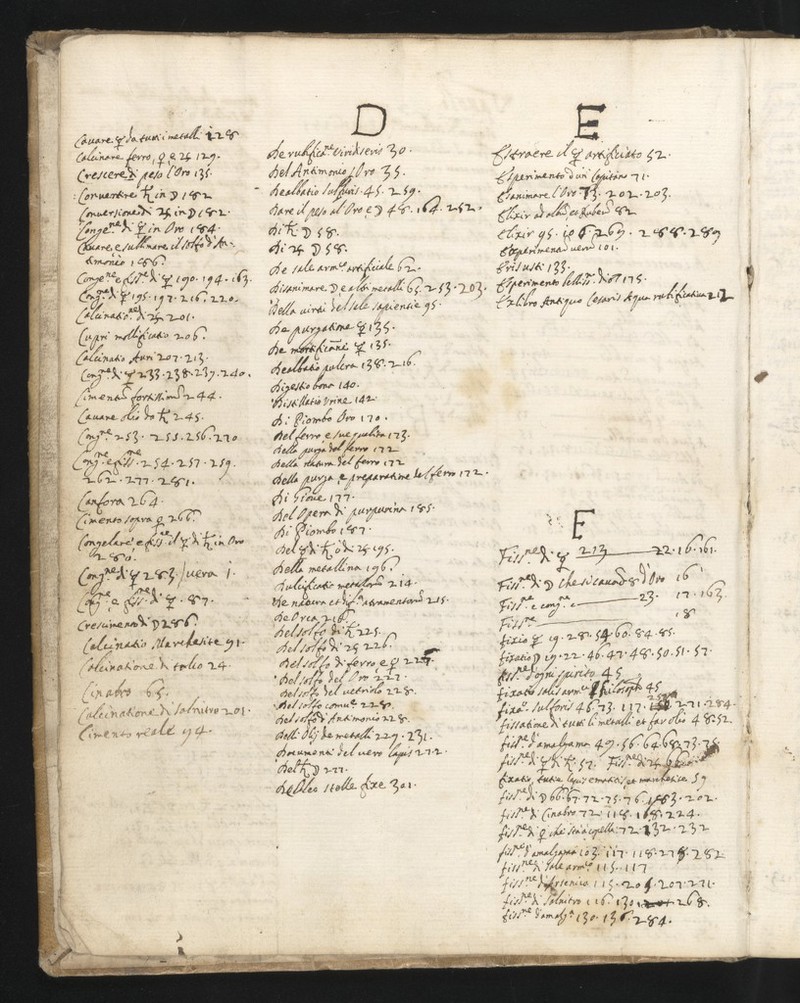 Cavare ☿ da tutti i metalli 128
Calcinare ferro, ♀ e ♃ 129.
Crescere di peso l'Oro 135.
Convertire ♄ in ☽ 182
Conversione di ♃ in ☽ 182.
Conge.ne di ☿ in Oro 184.
Cavare e sullimare il solfo d'An-
timonio 186.
Conge.ne e fiss.ne di ☿ 190. 194. 163.
Cong.ne di ☿ 195. 197. 216. 220.
Calcinatio.ne di ♃ 201.
Cupri mollificatio 206.
Calcinatio Auri 207. 213.
Cong.ne di ☿ 233. 238. 239. 240.
Cimento fortissimo 244.
Cavare olio do ♄ 245.
Cong.ne 253. 255. 256. 270
Cong.ne e fiss.ne 254. 257. 259.
262. 277. 281.
Canfora 264.
Cimento sopra ♀ 266.
Congelare e fiss.e il ☿ di ♄ in Oro
280.
Cong.ne di ☿ 283. / vera 1.
Cong.ne e fiss.ne di ☿ 87.
Crescimento di ☽ 286.
Calcinatio Marchesite 91.
Calcinatione di talco 24.
Cinabro 65.
Calcinatione di salnitro 201.
Cimento reale 94.
D
De rubifica.ne Viridis eris 30.
Del Antimonio l'Oro 35.
Dealbatio sulfuris 45. 259.
Dare il peso al Oro e ☽ 48. 164. 252.
Di ♄ ☽ 58.
Di ♃ ☽ 58.
De sale arm.o artificiale 62.
Disanimare ☽ e altri metalli 65. 253. 203.
Della virtù del sale sapientie 95.
De purgatione ☿ 135.
De mortificandi ☿ 135.
Dealbatio pulcra 138. 216.
Digestio bona 140.
Distillatio Urine 142.
Di Piombo Oro 170.
Del ferro e sue qualità 173.
Della purga dal ferro 172
Della natura del ferro 172
Della purga e preparatione del ferro 172.
Di Giove 177.
Del Opera di purpurina 185.
Di Piombo 187.
Del ☿ di ♄ ò di ♃ 195.
Della metallina 196.
Dulcificatio metallorum 214.
De natura et atramentorum 215.
De Orca 216.
Del solfo di ♄ 225.
Del solfo di ♃ 226.
Del solfo di ferro e ♀ 227.
Del solfo del Oro 227.
Del solfo del vetriolo 228.
Del solfo comu.e 228.
Del solfo di Antimonio 228.
Delli Olij de metalli 229. 231.
Documenti del vero lapis 272.
Del ♄ ☽ 277.
De Oleo stelle fixe 301.
E
Estraere il ☿ artificiato 52.
Esperimento d'un Capitano 71.
Esanimare l'Oro 73. 202. 203.
Elixir ad album et Rubeum 82
Elixir 95. 106. 269. 288. 289
Experimenta vera 101.
Eris usti 133.
Esperimento belliss.o di 175.
Ex libro Antiquo Cesaris Aqua rutificativa 212
F
Fiss.ne di ☿ 213 22. 16. 161.
Fiss.ne di ☽ che si cava d'Oro 16
Fiss.ne e cong.ne 23. 17. 163.
Fiss.ne 18
fixio ☿ 19. 28. 54. 60. 84. 85.
fixatio ☽ 19. 22. 46. 47. 48. 50. 51. 57.
fiss.ne d'ogni spirito 45
fixatio salis arm.ci Philosoph. 45
fixa.o sulforis 46. 73. 117. 271. 284.
fissatione di tutti li metalli et far olio 48. 52.
fiss.ne d'amalgama 49. 56. 64. 68. 73. 75.
fiss.ne di ☿ di ♄ 57. Fiss.ne di ♃
fixatio, tutia lapis ematitis, et manhetica 59
fiss.ne di ☽ 66. 67. 72. 75. 76. 183. 202.
fiss.ne di Cinabro 72. 118. 168. 224.
fiss.ne di ♀ che stia à copella 72. 132. 232
fiss.ne d'amalgama 103. 117. 118. 278. 282
fiss.ne di sale arm.o 115. 117
fiss.ne d'Arsenico 115. 201. 207. 271.
fiss.ne di Salnitro 116. 130. 268.
fiss.ne d'amalg.a 130. 136. 284.